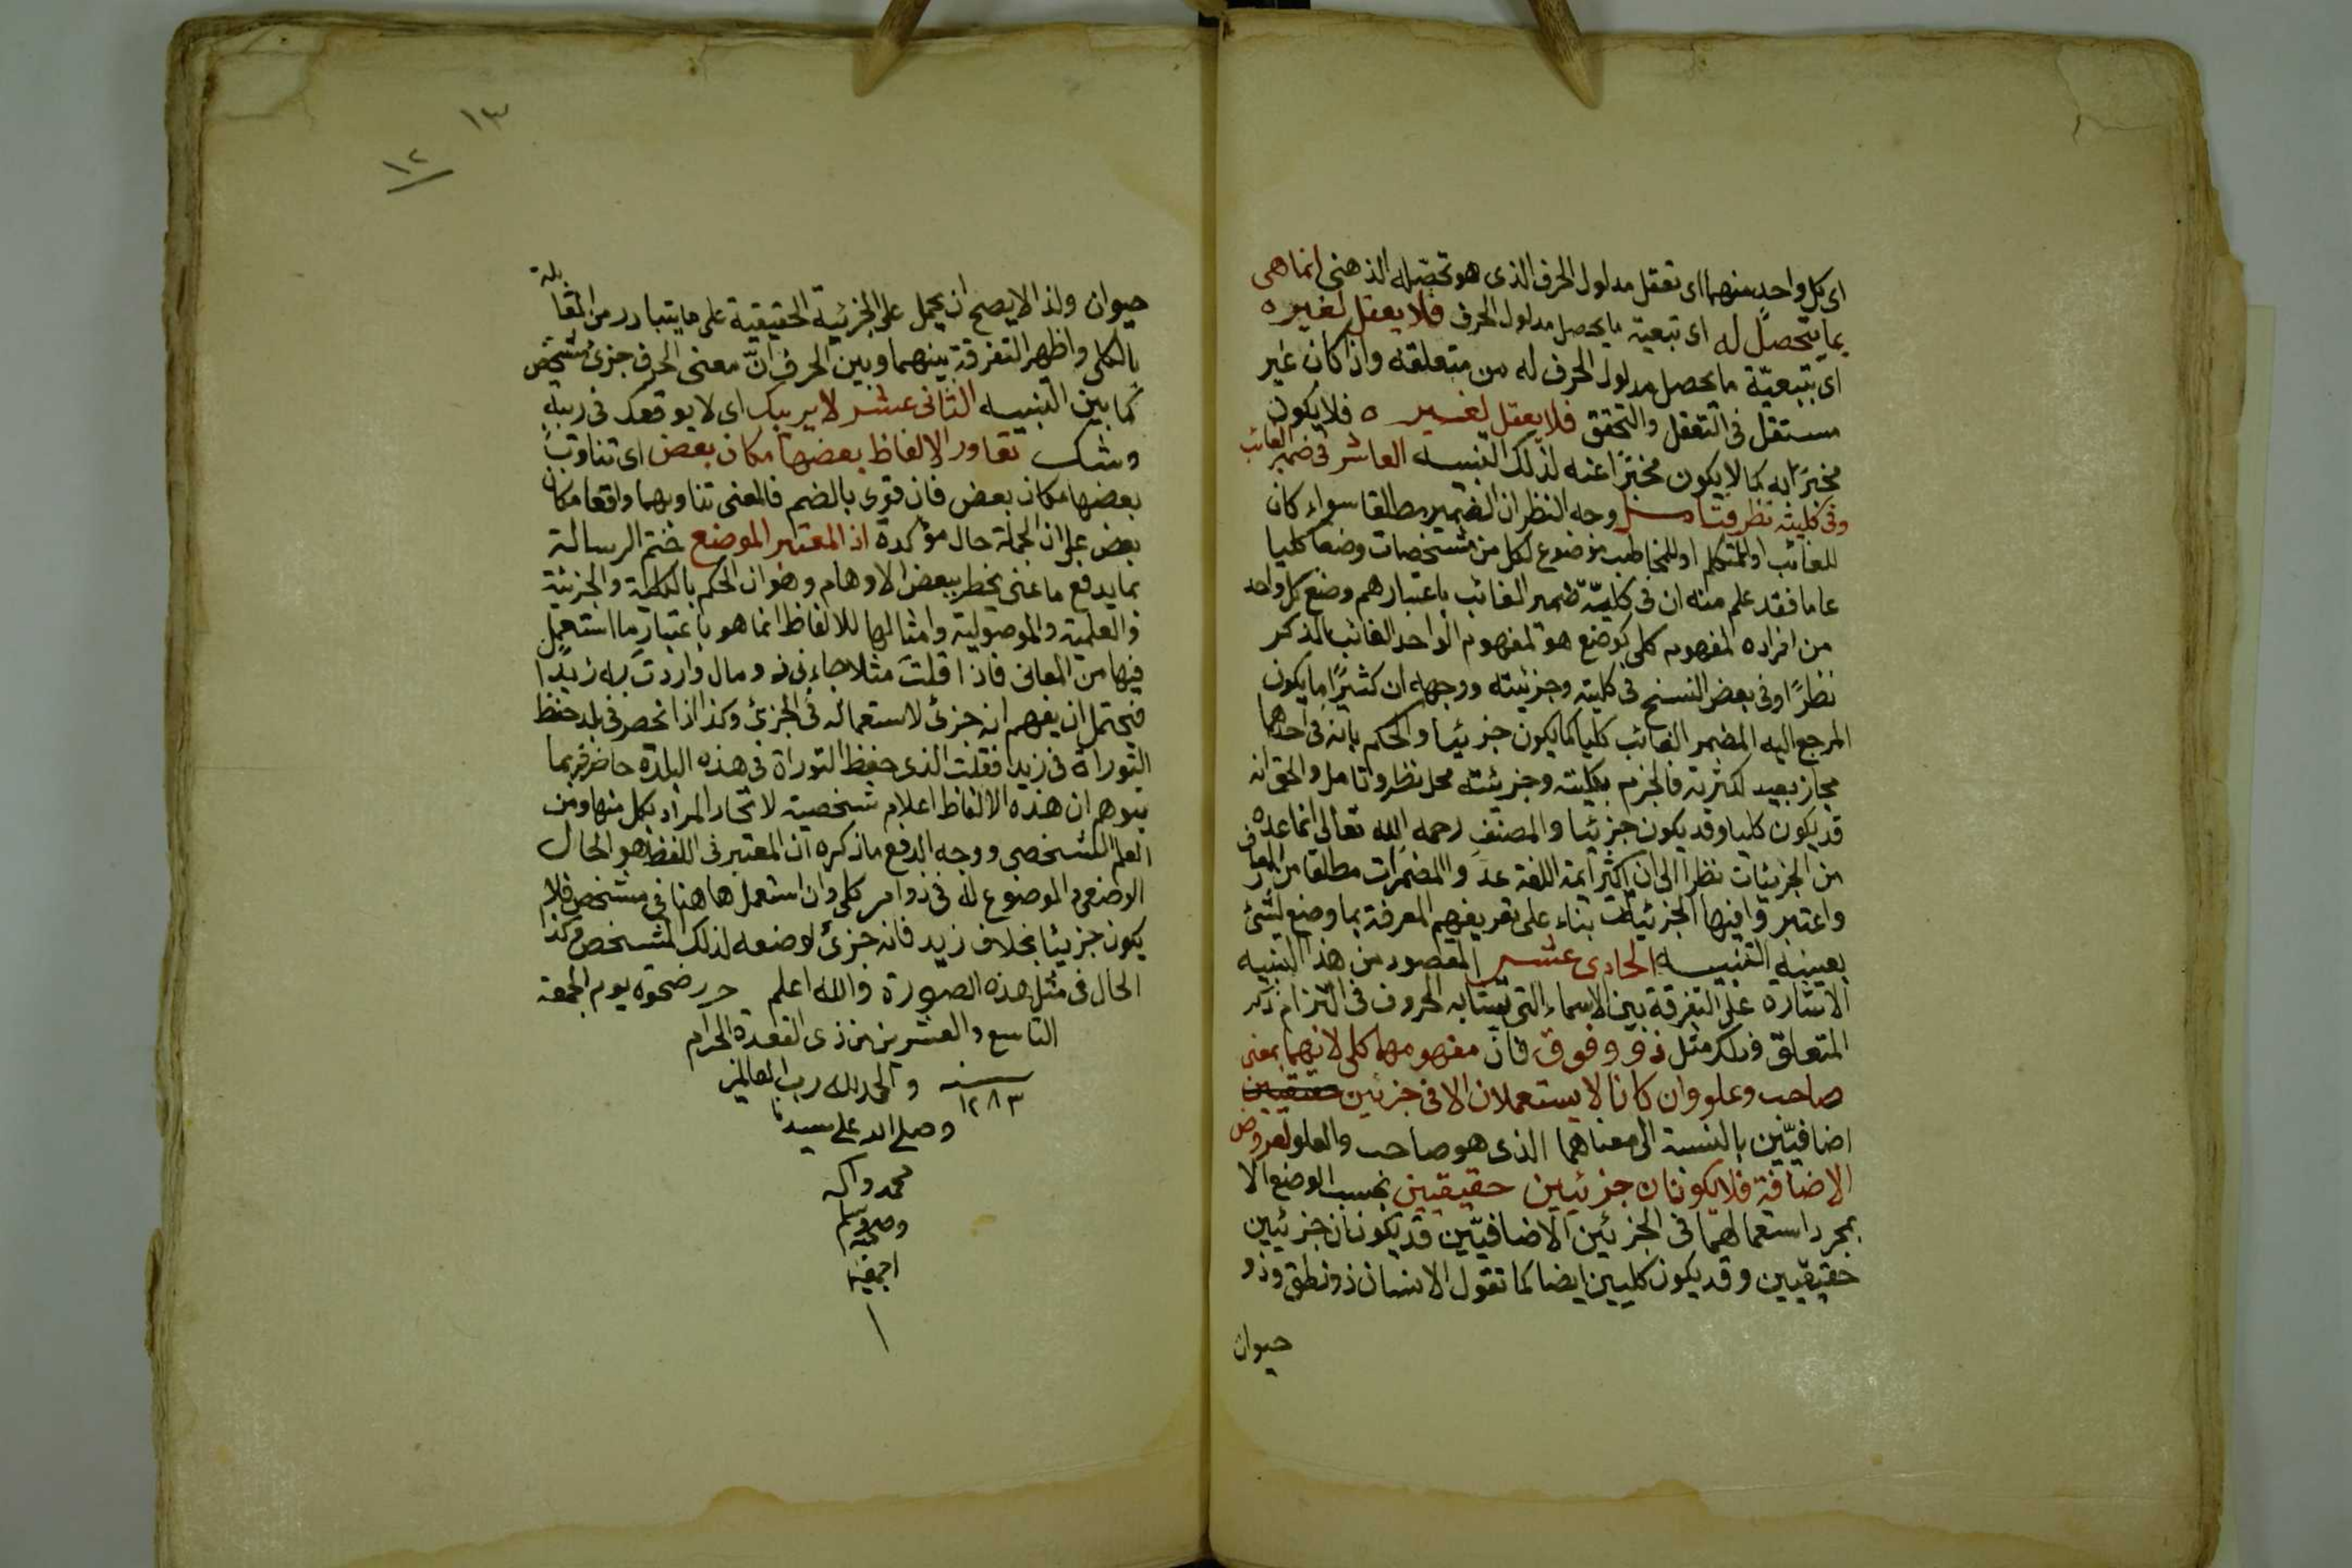 اى كل واحد منهما اى تعقل مدلول الحرف الذى هو تحصّله الذهنى انما هى
بما يتحصل له اى تبعية ما يحصل مدلول الحرف فلا يعقل لغيره
اى بتبعيّة ما يحصل مدلول الحرف له من متعلقه واذا كان غير
مستقل فى التعقل والتحقق فلا يعقل لغيره فلا يكون
مخبرًا به كما لا يكون مخبرًا عنه لذلك التنبيه العاشر فى ضمير الغائب
وفى كليته نظر فتامل وجه النظر ان الضمير مطلقا سواء كان
للغائب او للمتكلم او للمخاطب موضوع لكل من مشخصات وضعا كليا
عاما فقد علم منه ان فى كليّة ضمير الغائب باعتبارهم وضع كل واحد
من افراده المفهوم كلى كوضع هو لمفهوم الواحد الغائب بالذكر
نظرًا وفى بعض النسخ فى كليته وجزئيته ووجهه ان كثيرًا ما يكون
المرجع اليه المضمر الغائب كليا كما يكون جزئيا والحكم بانه فى احدهما
مجاز بعيد لكثرته فالجزم بكليته وجزئيته محل نظر وتامل والحق انه
قد يكون كليا وقد يكون جزئيا والمصنف رحمه الله تعالى انما عده
من الجزئيات نظرا الى ان اكثر ائمة اللغة عدوا المضمرات مطلقا من المعارف
واعتبروا فيها الجزئيات بناء على تعريفهم المعرفة بما وضع لشئ
بعينه التنبيه الحادى عشر المقصود من هذا التنبيه
الاشارة على التفرقة بين الاسماء التى تشابه الحروف فى التزام ذكر
المتعلق وذلك مثل ذو وفوق فان مفهومهما كلى لانهما بمعنى
صاحب وعلو وان كانا لا يستعملان الا فى جزئين حقيقيين
اضافيّين بالنسبة الى معناهما الذى هو صاحب والعلو لعروض
الاضافة فلا يكونان جزئيين حقيقيين بحسب الوضع الا
بمجرد استعمالهما فى الجزئين الاضافيّين قد يكونان جزئيين
حقيقيين وقد يكون كليين ايضا كما تقول الانسان ذو نطق وذو
حيوان
١٣
١٢
حيوان ولذا لا يصح ان يحمل على الجزئية الحقيقية على ما يتبادر من المقابلة
بالكلى واظهر التفرقة بينهما وبين الحرف انّ معنى الحرف جزئ مشخص
كما بين التنبيه الثانى عشر لا يريبك اى لا يوقعك فى ريبةٍ
وشك تعاور الالفاظ بعضها مكان بعض اى تناوب
بعضها مكان بعض فان قرى بالضم فالمعنى تناوبهما واقعا مكان
بعض على ان الجملة حال مؤكدة اذ المعتبر الموضع ختم الرسالة
بما يدفع ما عنى يخطر ببعض الاوهام وهو ان الحكم بالكلية والجزئية
والعلمية والموصولية وامثالها للالفاظ انما هو باعتبار ما استعمل
فيها من المعانى فاذا قلتَ مثلا جاءنى ذو مال واردتَ به زيدًا
فيحتمل ان يفهم انه جزئ لاستعماله فى الجزئ وكذا اذا انحصر فى بلد حفظ
التوراة فى زيد فقلت الذى حفظ التوراة فى هذه البلدة حاضر فربما
يتوهم ان هذه الالفاظ اعلام شخصية لاتحاد المراد بكل منها ومن
العلم الشخصى ووجه الدفع ما ذكره ان المعتبر فى اللفظ هو الحال
الوضعى والموضوع له فى ذو امر كلى وان استعمل هاهنا فى مشخص فلا
يكون جزئيا بخلاف زيد فانه جزئ لوضعه لذلك المشخص وكذا
الحال فى مثل هذه الصورة والله اعلم حرر ضحوة يوم الجمعة
التاسع والعشرين من ذى القعدة الحرام
سنه ١٢٨٣ والحمد لله رب العالمين
وصلى الله على سيدنا
محمد واله
وصحبه وسلم
اجمعين